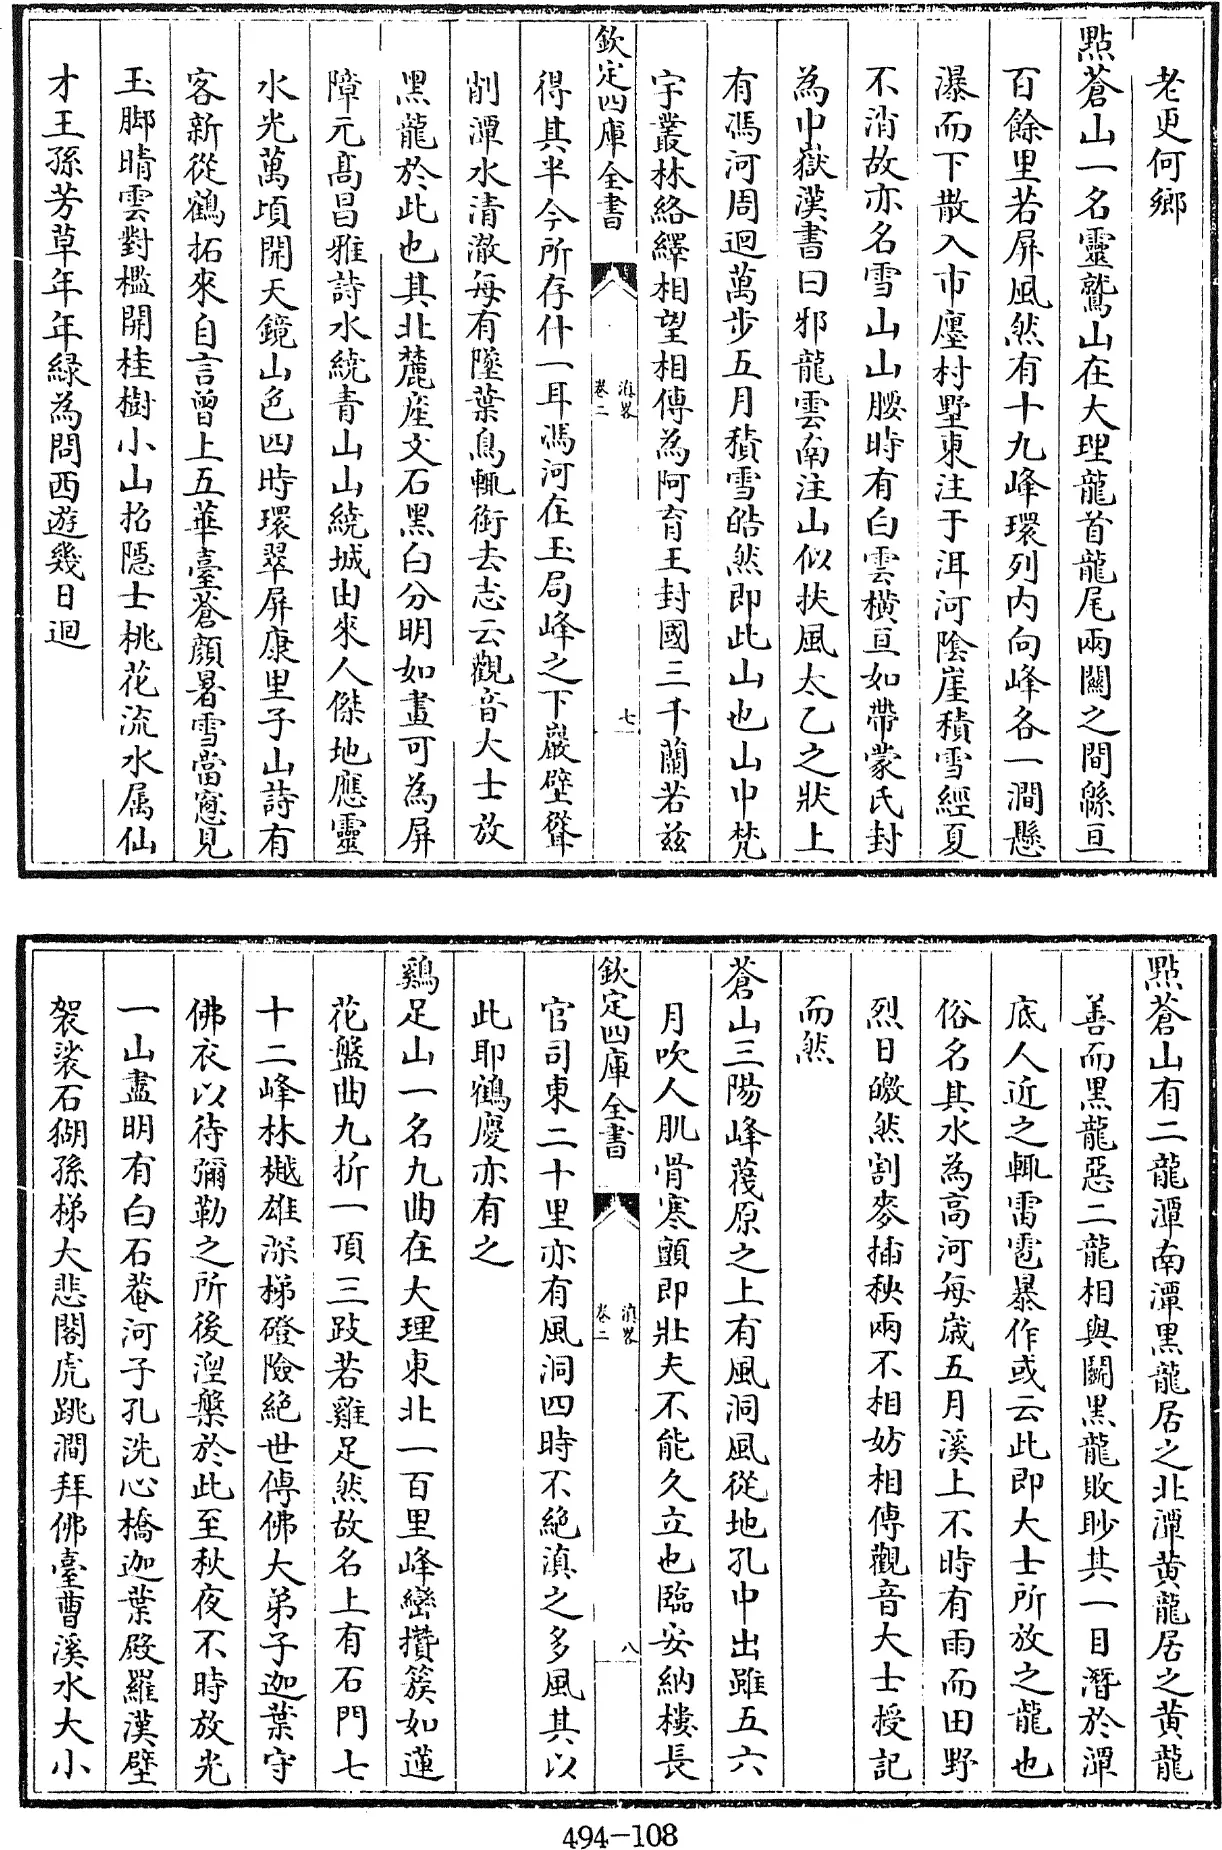 老更何鄉
點蒼山一名靈鷲山在大理龍首龍尾兩關之間緜亘
百餘里若屏風然有十九峰環列内向峰各一澗懸
瀑而下散入市廛村墅東注于洱河陰崖積雪經夏
不消故亦名雪山山腰時有白雲橫亘如帶蒙氏封
為中嶽漢書曰邪龍雲南注山似扶風太乙之狀上
有馮河周迴萬步五月積雪皓然即此山也山中梵
宇叢林絡繹相望相傳為阿育王封國三千蘭若兹
欽定四庫全書
滇畧
卷二
七
得其半今所存什一耳馮河在玉局峰之下巖壁聳
削潭水清澈每有墜葉鳥輒銜去志云觀音大士放
黑龍於此也其北麓産文石黑白分明如畫可為屏
障元高昌雅詩水繞青山山繞城由來人傑地應靈
水光萬頃開天鏡山色四時環翠屏康里子山詩有
客新從鶴拓來自言曾上五華臺蒼顔暑雪當窻見
玉脚晴雲對檻開桂樹小山招隱士桃花流水属仙
才王孫芳草年年緑為問西遊幾日迴
點蒼山有二龍潭南潭黒龍居之北潭黄龍居之黄龍
善而黒龍惡二龍相與鬬黒龍敗眇其一目潛於潭
底人近之輒雷雹暴作或云此即大士所放之龍也
俗名其水為高河每嵗五月溪上不時有雨而田野
烈日皦然割麥揷秧兩不相妨相傳觀音大士授記
而然
蒼山三陽峰䕶原之上有風洞風從地孔中出雖五六
月吹人肌骨寒顫即壯夫不能久立也臨安納樓長
欽定四庫全書
滇畧
卷二
八
官司東二十里亦有風洞四時不絶滇之多風其以
此耶鶴慶亦有之
鷄足山一名九曲在大理東北一百里峰巒攢簇如蓮
花盤曲九折一頂三跂若雞足然故名上有石門七
十二峰林樾雄深梯磴險絶世傳佛大弟子迦葉守
佛衣以待彌勒之所後湼槃於此至秋夜不時放光
一山盡明有白石菴河子孔洗心橋迦葉殿羅漢壁
袈裟石猢孫梯大悲閣虎跳澗拜佛臺曹溪水大小
494-108